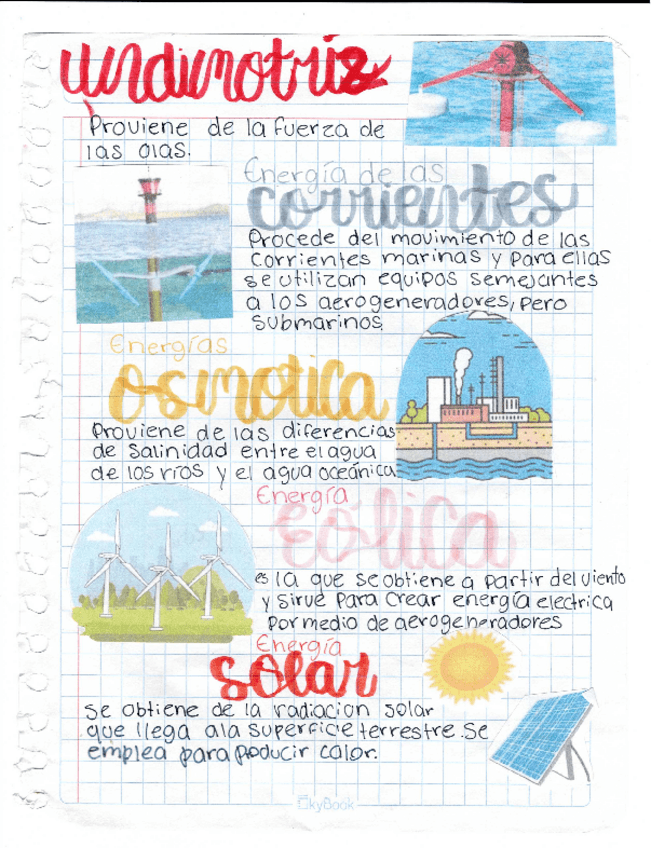 undimotriz
Proviene de la fuerza de
las olas.
Energía de las
corrientes
Procede del movimiento de las
corrientes marinas y para ellas
se utilizan equipos semejantes
a los aerogeneradores, pero
submarinos.
Energías
osmotica
Proviene de las diferencias
de salinidad entre el agua
de los ríos y el agua oceánica
Energía
Eólica
es la que se obtiene a partir del viento
y sirve para crear energía electrica
por medio de aerogeneradores
Energía
solar
se obtiene de la radiacion solar
que llega a la superficie terrestre. Se
emplea para producir calor.
SkyBook